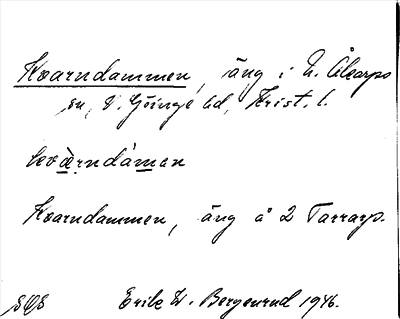 Kvarndammen, äng i N. Åkarps
sn, V. Göinge hd, Krist. l.
kvàrndáman
Kvarndammen, äng å 2 Tarrarp.
SOS Erik W. Bergenrud 1946.